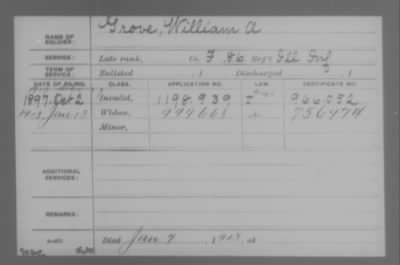 NAME OF SOLDIER: Grove, William A
SERVICE: Late rank, Co. F, 86 Reg't Ill Inf
TERM OF SERVICE: Enlisted , 1 Discharged , 1
DATE OF FILING. CLASS. APPLICATION NO. LAW. CERTIFICATE NO.
1897 Oct 2 Invalid, 1198.939 J 966.052
1913 Jan 13 Widow, 999668 756974
Minor,
ADDITIONAL SERVICES:
REMARKS:
Died Jan 7, 1913, at